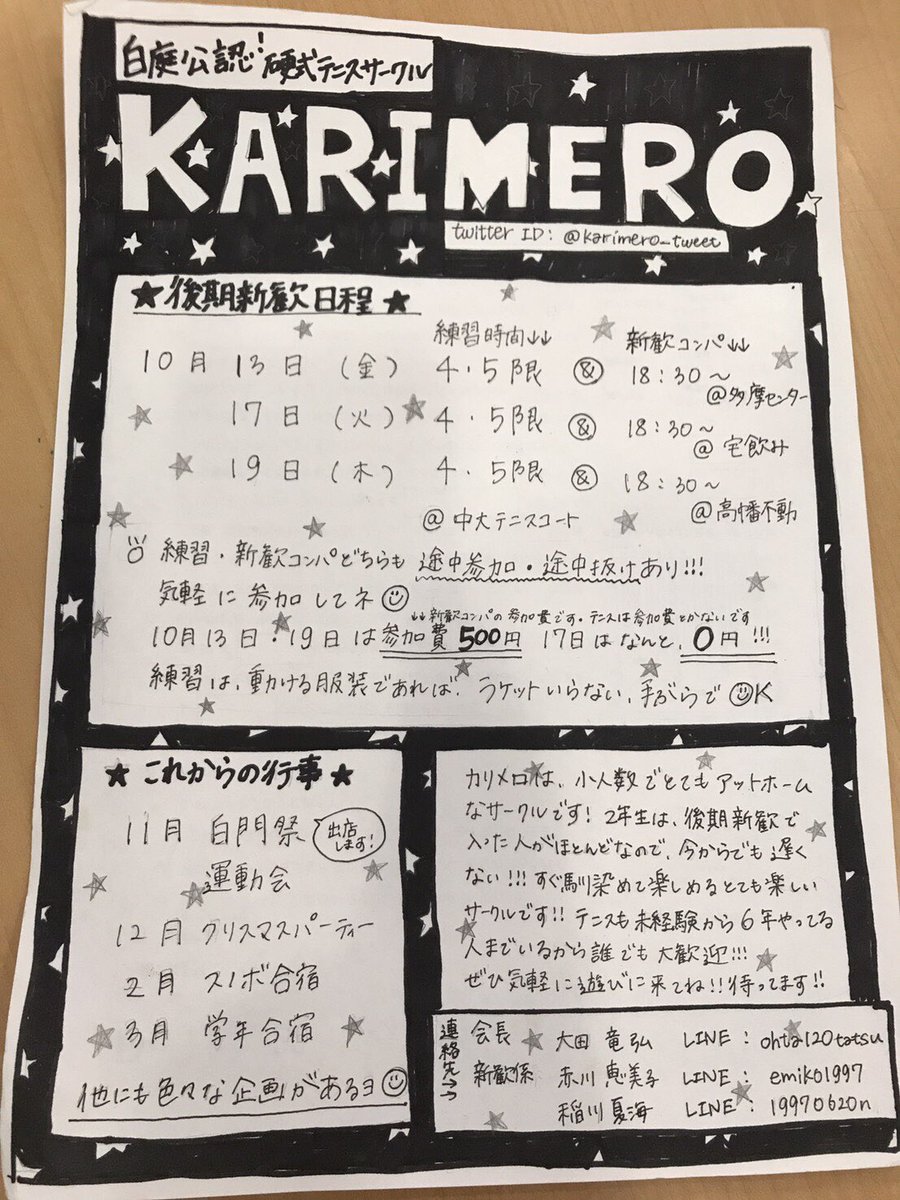 白庭公認! 硬式テニスサークル
KARIMERO
twitter ID: @karimero_tweet
★後期新歓日程★
練習時間↓↓ 新歓コンパ↓↓
10月 13日 (金) 4・5限 & 18:30〜
@多摩センター
17日 (火) 4・5限 & 18:30〜
@宅飲み
19日 (木) 4・5限 & 18:30〜
@中大テニスコート @高幡不動
練習・新歓コンパどちらも 途中参加・途中抜けあり!!!
気軽に参加してネ
↓↓新歓コンパの参加費です・テニスは参加費とかないです
10月13日・19日は参加費500円 17日はなんと、0円!!!
練習は、動ける服装であれば、ラケットいらない、手ぶらでOK
★これからの行事★
11月 白門祭 出店します!
運動会
12月 クリスマスパーティー
2月 スノボ合宿
3月 学年合宿
他にも色々な企画があるヨ
カリメロは、小人数でとてもアットホーム
なサークルです! 2年生は、後期新歓で
入った人がほとんどなので、今からでも遅く
ない!!! すぐ馴染めて楽しめるとても楽しい
サークルです!! テニスも未経験から6年やってる
人までいるから誰でも大歓迎!!!
ぜひ気軽に遊びに来てね!! 待ってます!!
連絡先→→
会長 大田 竜弘 LINE: ohta120tatsu
新歓係 赤川 恵美子 LINE: emiko1997
稲川 夏海 LINE: 19970620n